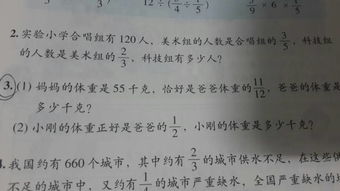 12÷(3/4÷1/5)
5/9×6×1/5
2. 实验小学合唱组有120人,美术组的人数是合唱组的3/5,科技组
的人数是美术组的2/3,科技组有多少人?
3.(1) 妈妈的体重是55千克,恰好是爸爸体重的11/12,爸爸的体重是
多少千克?
(2) 小刚的体重正好是爸爸的1/2,小刚的体重是多少千克?
4. 我国约有660个城市,其中约有2/3的城市供水不足,在这些供
不足的城市中,又约有1/4的城市严重缺水,全国严重缺水的